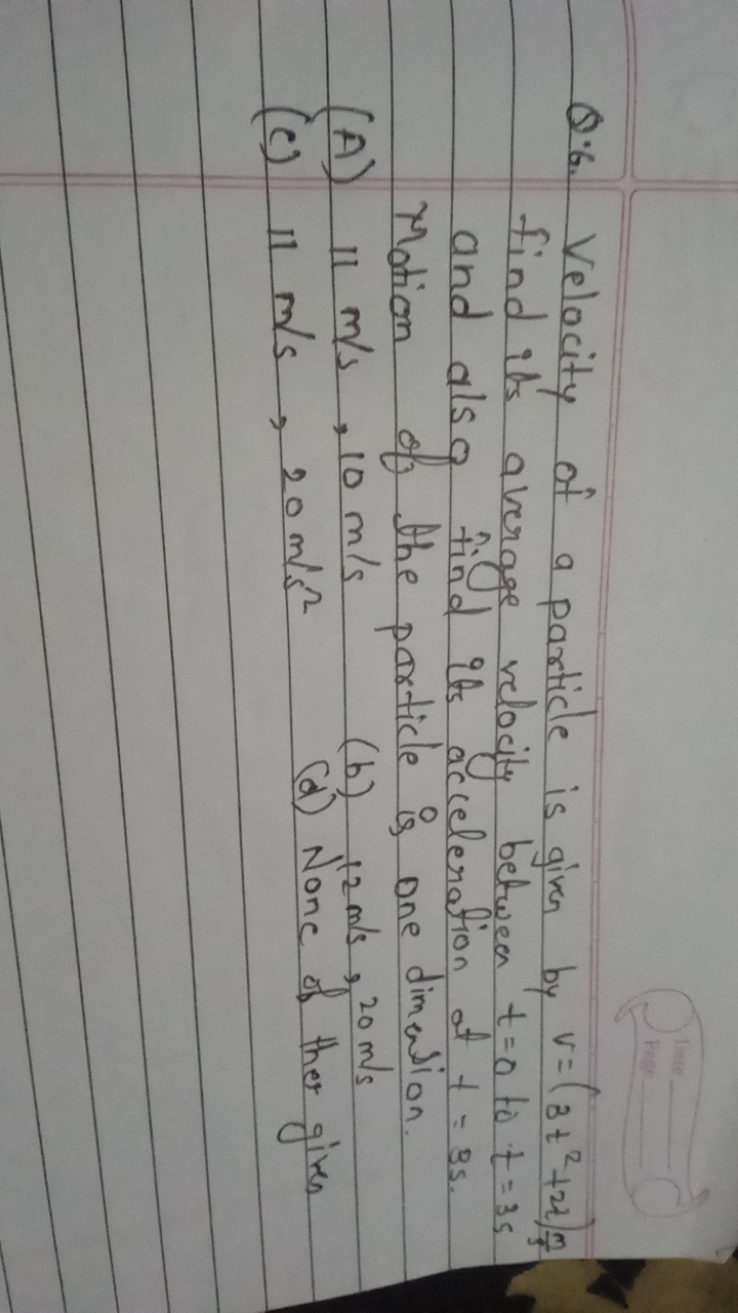 Date
Page
Q.6. Velocity of a particle is given by v = (3t² + 2t) m/s
find its average velocity between t = 0 to t = 3s
and also find its acceleration at t = 3s.
Motion of the particle is one dimension.
(A) 11 m/s , 10 m/s (b) 12 m/s , 20 m/s
(C) 11 m/s , 20 m/s² (d) None of ther given